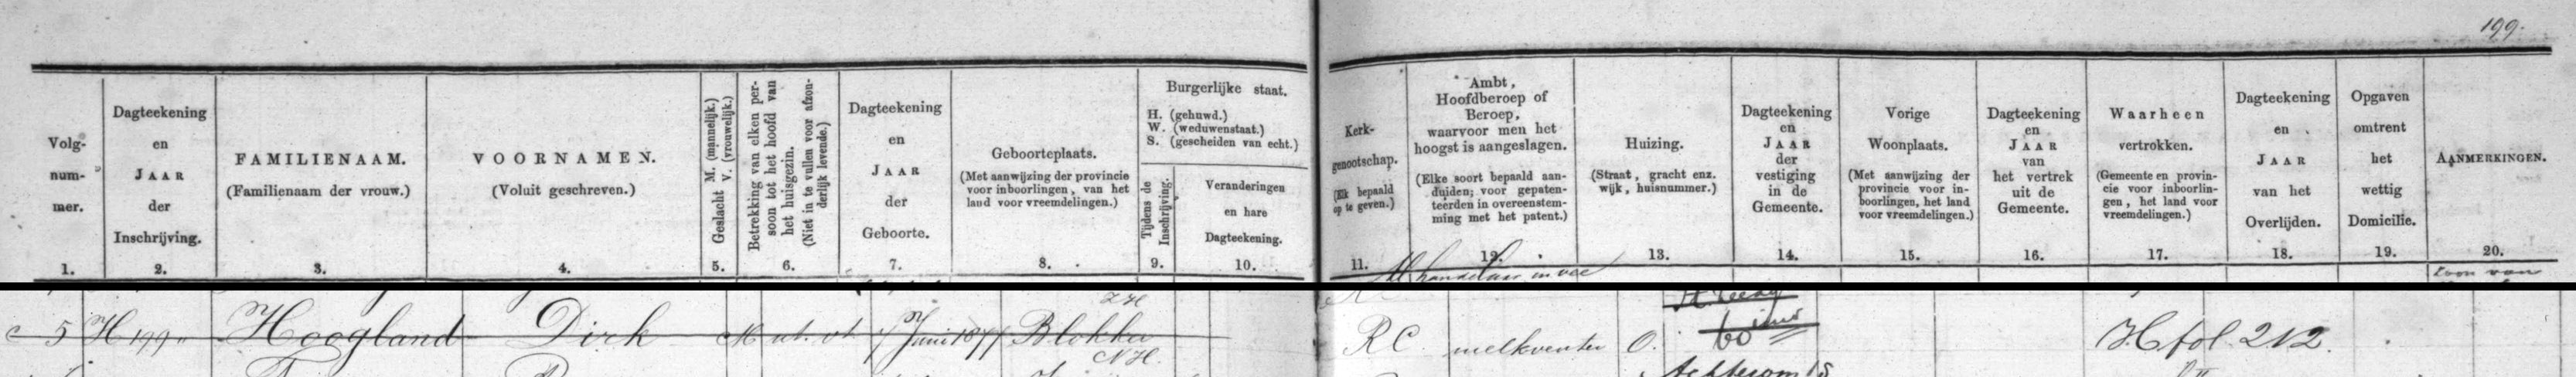 199.
Volg-
num-
mer.
1.
Dagteekening
en
JAAR
der
Inschrijving.
2.
FAMILIENAAM.
(Familienaam der vrouw.)
3.
VOORNAMEN.
(Voluit geschreven.)
4.
Geslacht M. (mannelijk.)
V. (vrouwelijk.)
5.
Betrekking van elken per-
soon tot het hoofd van
het huisgezin.
(Niet in te vullen voor afzon-
derlijk levende.)
6.
Dagteekening
en
JAAR
der
Geboorte.
7.
Geboorteplaats.
(Met aanwijzing der provincie
voor inboorlingen, van het
land voor vreemdelingen.)
8.
Burgerlijke staat.
H. (gehuwd.)
W. (weduwenstaat.)
S. (gescheiden van echt.)
Tijdens de
Inschrijving.
9.
Veranderingen
en hare
Dagteekening.
10.
Kerk-
genootschap.
(Elk bepaald
op te geven.)
11.
Ambt,
Hoofdberoep of
Beroep,
waarvoor men het
hoogst is aangeslagen.
(Elke soort bepaald aan-
duiden; voor gepaten-
teerden in overeenstem-
ming met het patent.)
12.
handelaar in vee
Huizing.
(Straat, gracht enz.
wijk, huisnummer.)
13.
Dagteekening
en
JAAR
der
vestiging
in de
Gemeente.
14.
Vorige
Woonplaats.
(Met aanwijzing der
provincie voor in-
boorlingen, het land
voor vreemdelingen.)
15.
Dagteekening
en
JAAR
van
het vertrek
uit de
Gemeente.
16.
Waarheen
vertrokken.
(Gemeente en provin-
cie voor inboorlin-
gen, het land voor
vreemdelingen.)
17.
Dagteekening
en
JAAR
van het
Overlijden.
18.
Opgaven
omtrent
het
wettig
Domicilie.
19.
AANMERKINGEN.
20.
zoon van
ZH
5 H 199 " Hoogland Dirk M ut. vt 7 Juni 1877 Blokker
NH.
RC melkventer O. 60 H fol. 212.